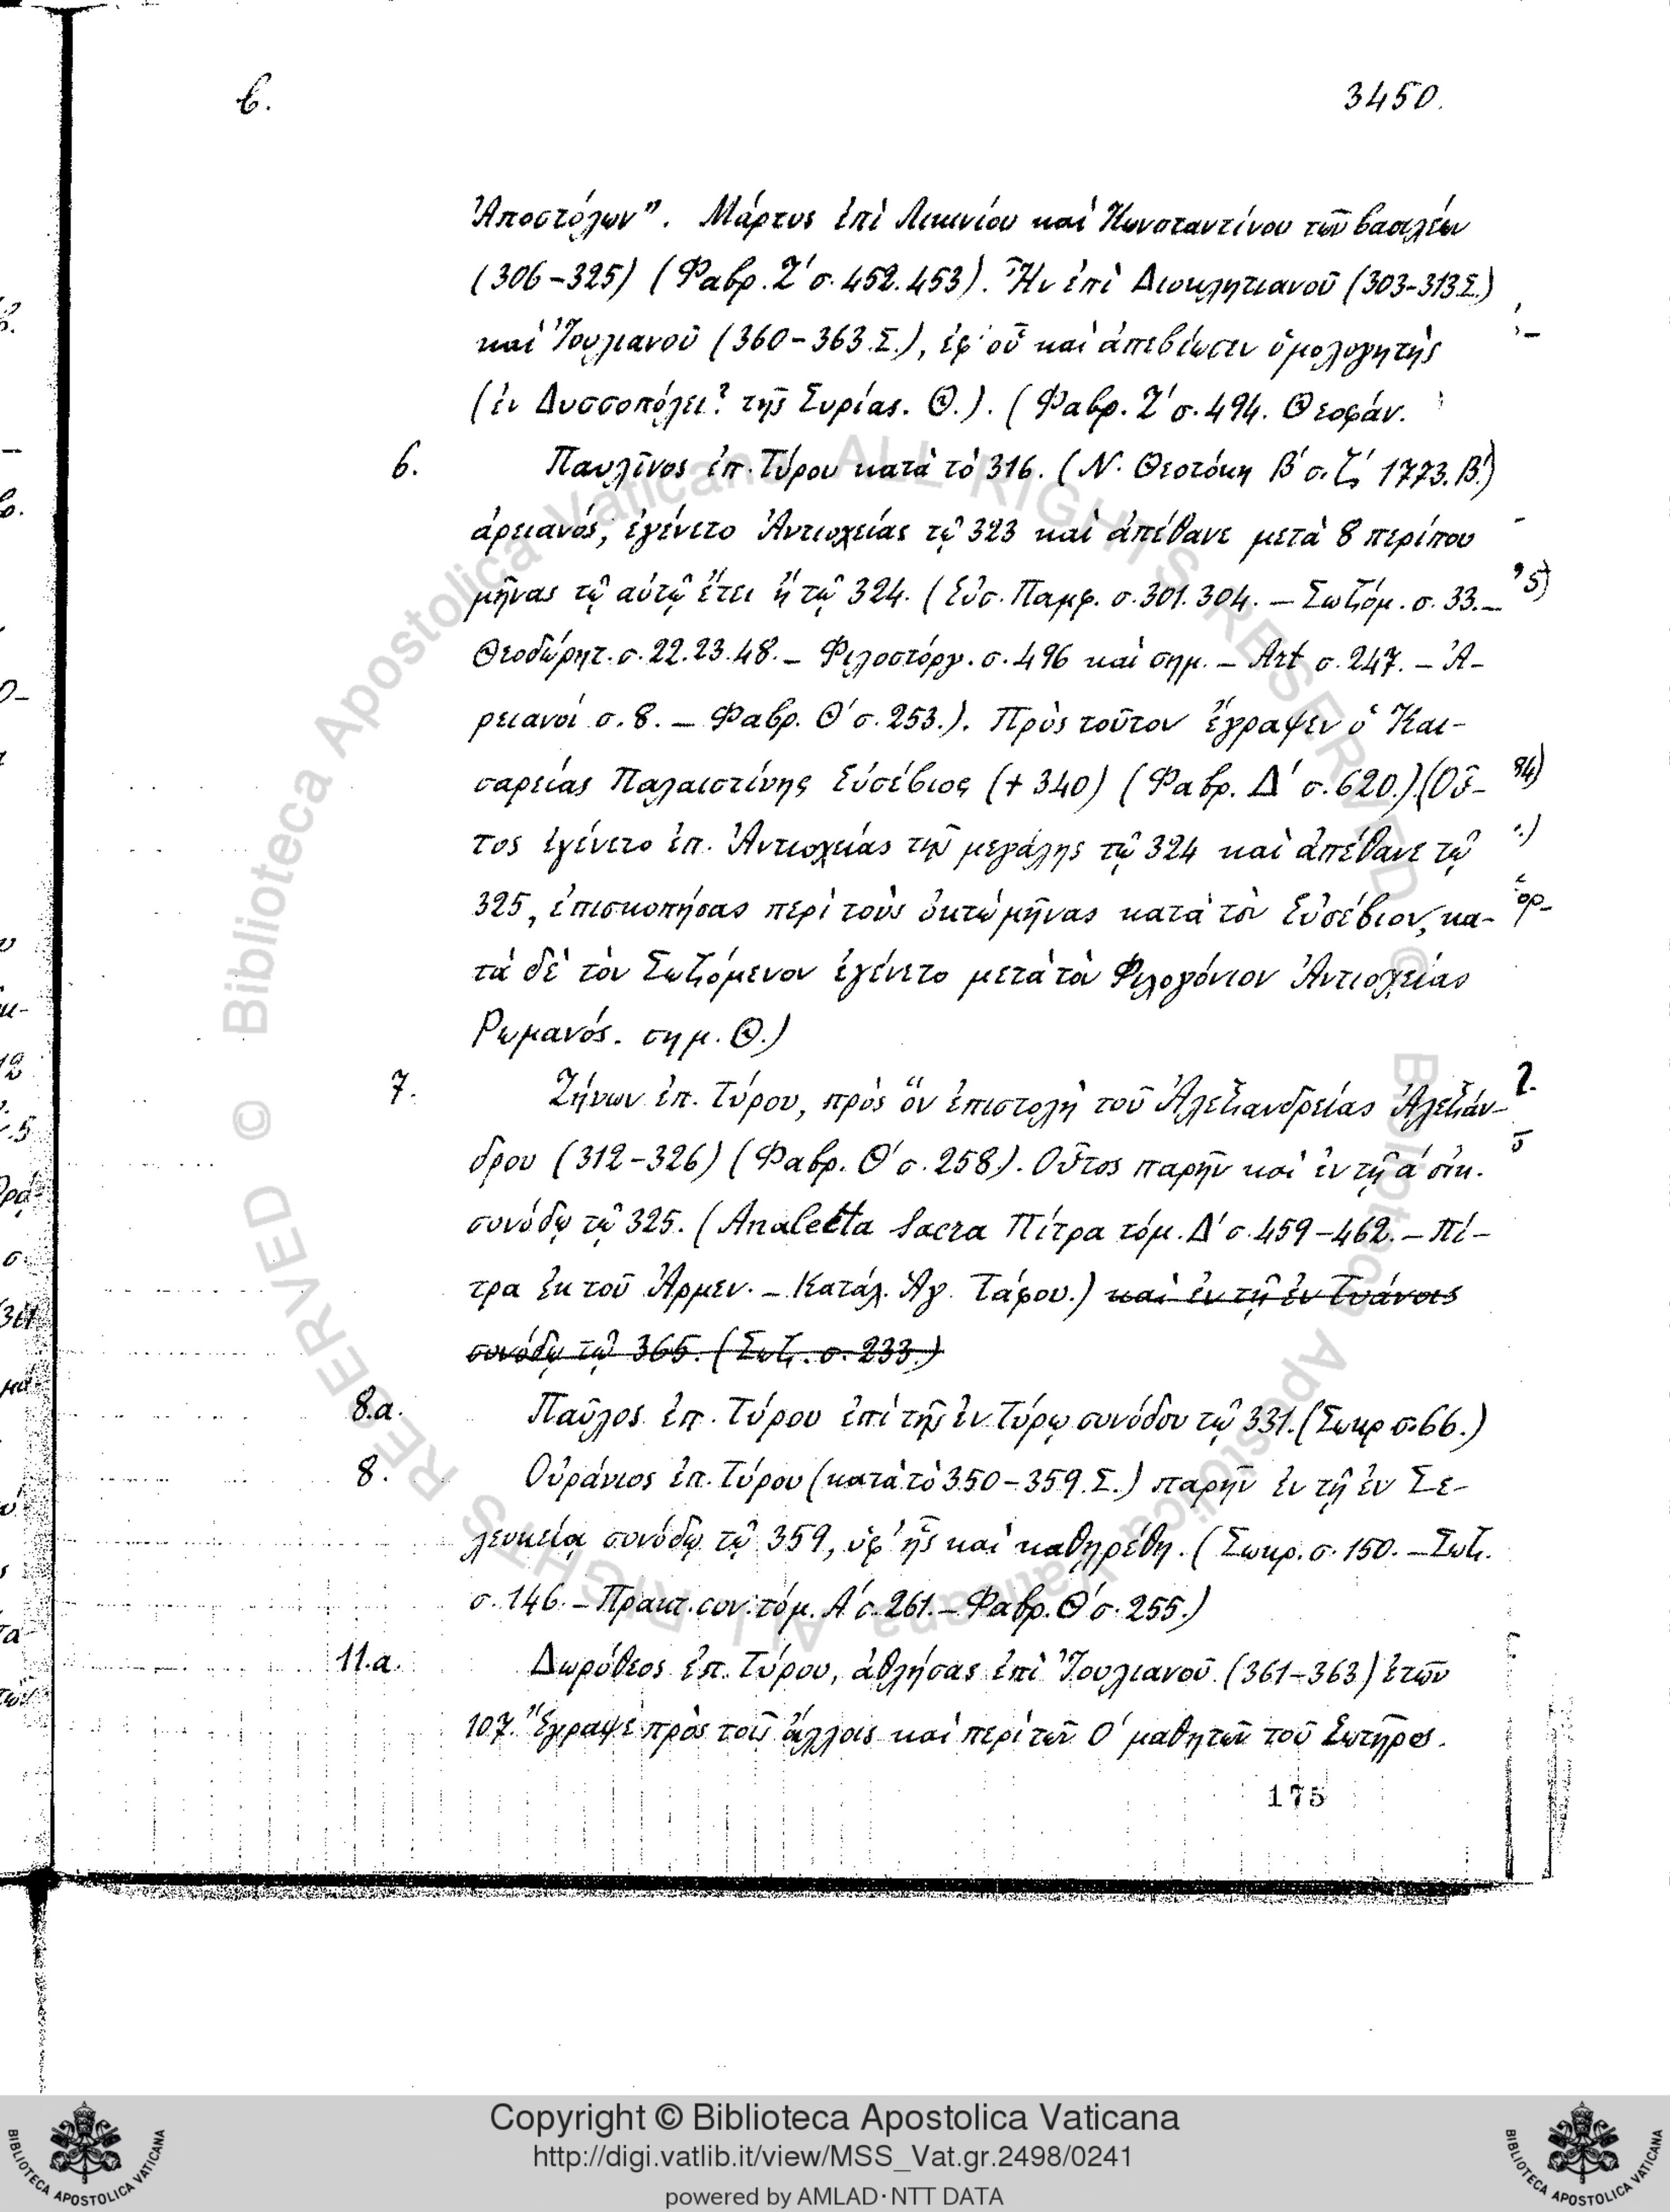 6.
3450.
Ἀποστόλων". Μάρτυς ἐπὶ Λικινίου καὶ Κωνσταντίνου τῶν βασιλέων
(306-325) (Φαβρ. Ζ' σ. 452. 453). Ἦν ἐπὶ Διοκλητιανοῦ (303-313 Σ.)
καὶ Ἰουλιανοῦ (360-363. Σ.), ἐφ' οὗ καὶ ἀπεβίωσεν ὁμολογητὴς
(ἐν Δυσσοπόλει? τῆς Συρίας. Θ.). (Φαβρ. Ζ' σ. 494. Θεοφάν.
6. Παυλῖνος ἐπ. Τύρου κατὰ τὸ 316. (Ν. Θεοτόκη Β' σ. ζ' 1773. Β'.)
ἀρειανός, ἐγένετο Ἀντιοχείας τῷ 323 καὶ ἀπέθανε μετὰ 8 περίπου
μῆνας τῷ αὐτῷ ἔτει ἢ τῷ 324. (Εὐσ. Παμφ. σ. 301. 304. – Σωζόμ. σ. 33. –
Θεοδώρητ. σ. 22. 23. 48. – Φιλοστόργ. σ. 496 καὶ σημ. – Art σ. 247. – Ἀ-
ρειανοί σ. 8. – Φαβρ. Θ' σ. 253.). Πρὸς τοῦτον ἔγραψεν ὁ Και-
σαρείας Παλαιστίνης Εὐσέβιος (+ 340) (Φαβρ. Δ' σ. 620.) (Οὗ-
τος ἐγένετο ἐπ. Ἀντιοχείας τῆς μεγάλης τῷ 324 καὶ ἀπέθανε τῷ
325, ἐπισκοπήσας περὶ τοὺς ὀκτὼ μῆνας κατὰ τὸν Εὐσέβιον, κα-
τὰ δὲ τὸν Σωζόμενον ἐγένετο μετὰ τὸν Φιλογόνιον Ἀντιοχείας
Ρωμανός. σημ. Θ.)
7. Ζήνων ἐπ. Τύρου, πρὸς ὃν ἐπιστολὴ τοῦ Ἀλεξανδρείας Ἀλεξάν-
δρου (312-326) (Φαβρ. Θ' σ. 258). Οὗτος παρῆν καὶ ἐν τῇ α' οἰκ.
συνόδῳ τῷ 325. (Analecta Sacra Πίτρα τόμ. Δ' σ. 459-462. – Πί-
τρα ἐκ τοῦ Ἀρμεν. – Κατάλ. Ἁγ. Τάφου.) καὶ ἐν τῇ ἐν Τυάνοις
συνόδῳ τῷ 365. (Σωζ. σ. 233.)
8.α. Παῦλος ἐπ. Τύρου ἐπὶ τῆς ἐν Τύρῳ συνόδου τῷ 331. (Σωκρ σ. 66.)
8. Οὐράνιος ἐπ. Τύρου (κατὰ τὸ 350-359. Σ.) παρῆν ἐν τῇ ἐν Σε-
λευκείᾳ συνόδῳ τῷ 359, ὑφ' ἧς καὶ καθῃρέθη. (Σωκρ. σ. 150. – Σωζ.
σ. 146. – Πρακτ. συν. τόμ. Α' σ. 261. – Φαβρ. Θ' σ. 255.)
11.α. Δωρόθεος ἐπ. Τύρου, ἀθλήσας ἐπὶ Ἰουλιανοῦ (361-363) ἐτῶν
107. Ἔγραψε πρὸς τοῖς ἄλλοις καὶ περὶ τῶν Ο' μαθητῶν τοῦ Σωτῆρος.
175
Copyright © Biblioteca Apostolica Vaticana
http://digi.vatlib.it/view/MSS_Vat.gr.2498/0241
powered by AMLAD·NTT DATA
BIBLIOTECA APOSTOLICA VATICANA
BIBLIOTECA APOSTOLICA VATICANA